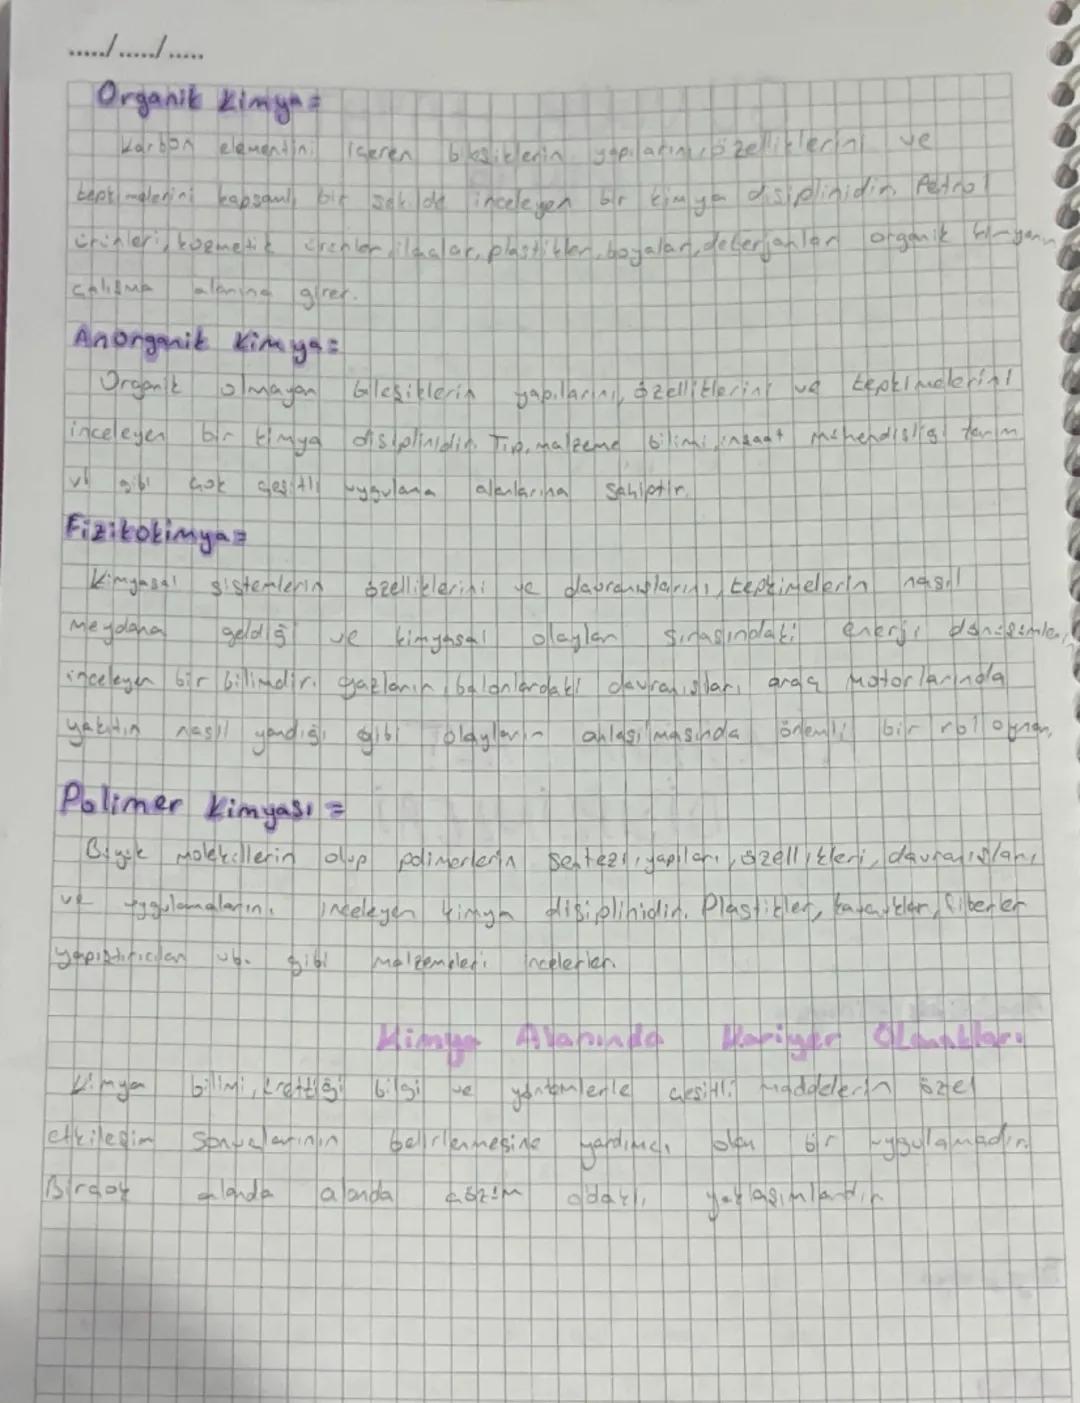 ...../...../.....
Organik Kimya=
Karbon elementini içeren bileşiklerin yapılarını, özelliklerini ve
tepkimelerini kapsamlı bir şekilde inceleyen bir kimya disiplinidir. Petrol
ürünleri, kozmetik ürünler, ilaçlar, plastikler, boyalar, deterjanlar organik kimyanın
çalışma alanına girer.
Anorganik Kimya=
Organik olmayan bileşiklerin yapılarını, özelliklerini ve tepkimelerini
inceleyen bir kimya disiplinidir. Tıp, malzeme bilimi, inşaat mühendisliği tarım
vb gibi çok çeşitli uygulama alanlarına sahiptir.
Fizikokimya=
Kimyasal sistemlerin özelliklerini ve davranışlarını, tepkimelerin nasıl
meydana geldiği ve kimyasal olaylar sırasındaki enerji dönüşümleri
inceleyen bir bilimdir. Gazların balonlardaki davranışları, araç motorlarında
yakıtın nasıl yandığı gibi olayların anlaşılmasında önemli bir rol oynar.
Polimer Kimyası =
Büyük moleküllerin olup polimerlerin sentezi, yapıları, özellikleri, davranışları,
ve uygulamalarını inceleyen kimya disiplinidir. Plastikler, kauçuklar, fiberler
yapıştırıcılar vb. gibi malzemeleri incelerler.
Kimya Alanında Kariyer Olanakları
Kimya bilimi, ürettiği bilgi ve yöntemlerle çeşitli maddelerin özel
etkileşim sonuçlarının belirlenmesine yardımcı olan bir uygulamadır.
Birçok alanda alanda çözüm odaklı yaklaşımlardır